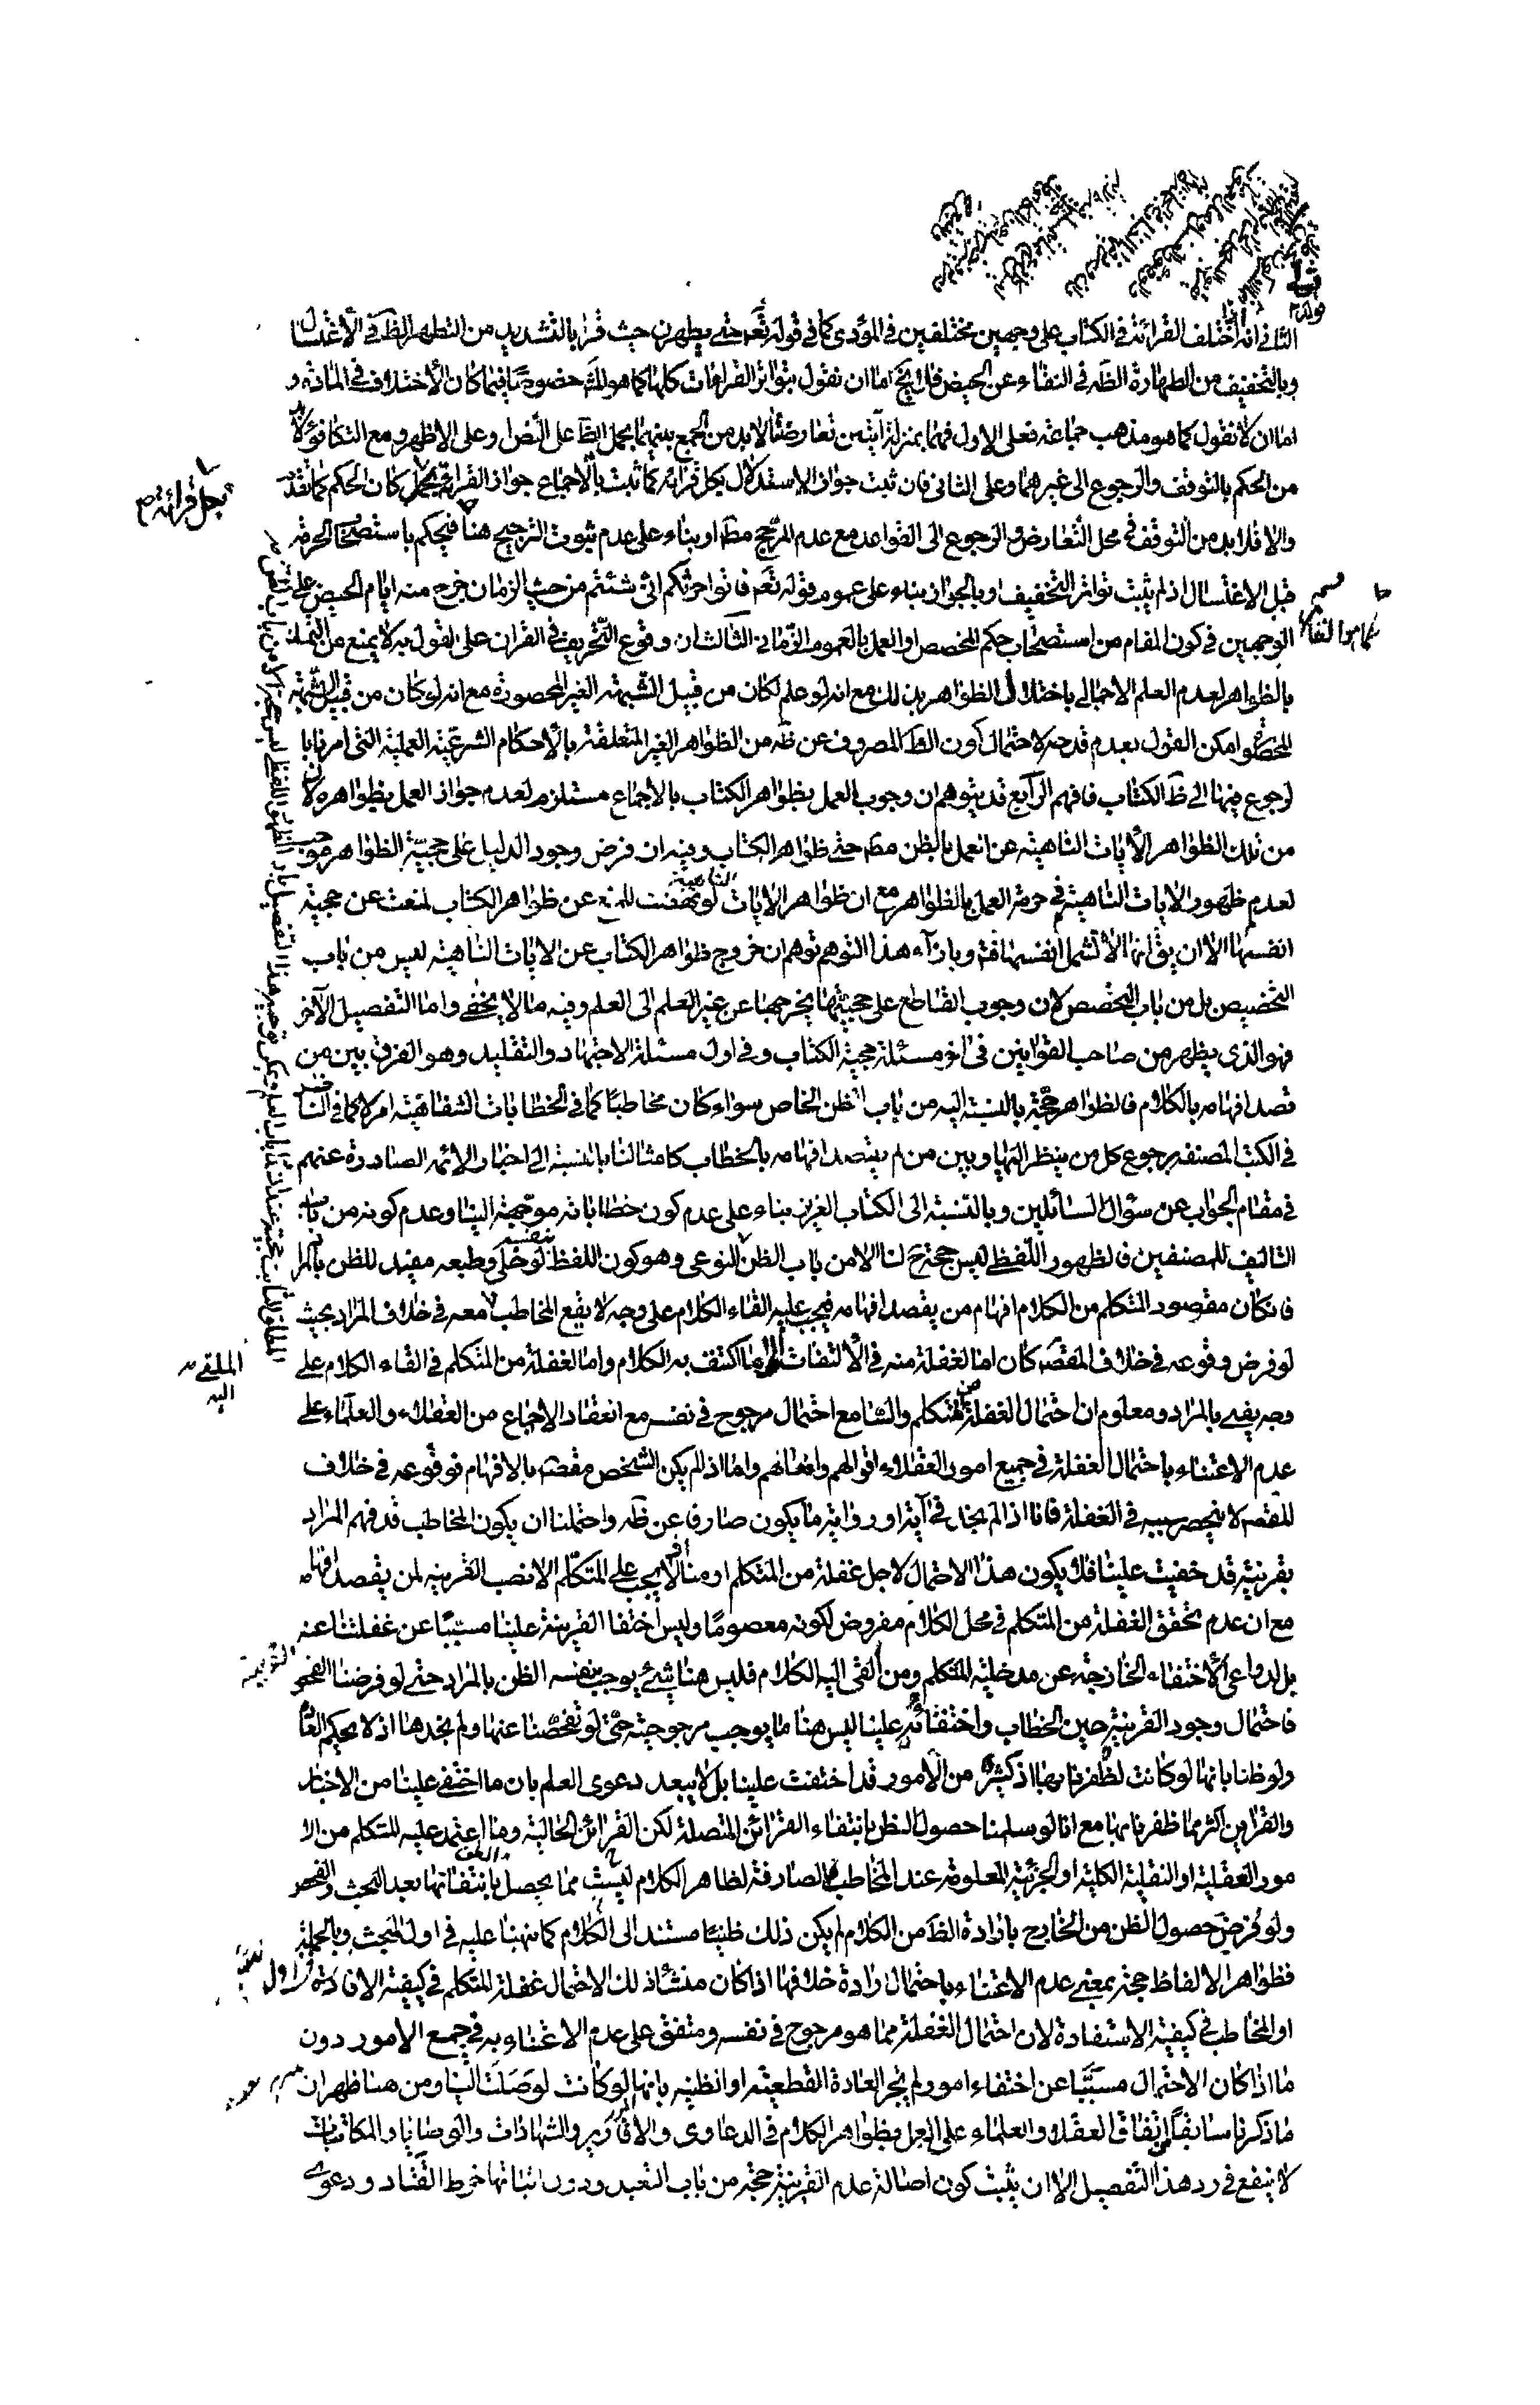 الثانى انه اذا اختلف القرائة فى الكتاب على وجهين مختلفين فى المؤدى كما فى قوله تعم حتى يطهرن حيث قرا بالتشديد من التطهر الظ فى الاغتسال
وبالتخفيف من الطهارة الظه فى النقاء عن الحيض فلا يخ اما ان نقول بتواتر القراءات كلها كما هو المش خصوصًا فيما كان الاختلاف فى المادة و
اما ان لا نقول كما هو مذهب جماعة فعلى الاول فهما بمنزلة آيتين تعارضتا لا بد من الجمع بينهما بحمل الظ على النص او على الاظهر ومع التكافؤ لا بد
من الحكم بالتوقف والرجوع الى غيرهما وعلى الثانى فان ثبت جواز الاستدلال بكل قرائة كما ثبت بالاجماع جواز القرائة بكل قرائة كان الحكم كما تقدم
والا فلا بد من التوقف فى محل التعارض والرجوع الى القواعد مع عدم المرجح مط او بناء على عدم ثبوت الترجيح هنا فيحكم باستصحاب الحرمة
قبل الاغتسال اذ لم يثبت تواتر التخفيف او بالجواز بناء على عموم قوله تعم فاتوا حرثكم انى شئتم من حيث الزمان خرج منه ايام الحيض على
الوجهين فى كون المقام من استصحاب حكم المخصص او العمل بالعموم الزمانى الثالث ان وقوع التحريف فى القران على القول به لا يمنع من التمسك
بالظواهر لعدم العلم الاجمالى باختلال الظواهر بذلك مع انه لو علم لكان من قبيل الشبهة الغير المحصورة مع انه لو كان من قبيل الشبهة
المحصورة امكن القول بعدم قدحه لاحتمال كون الظ المصروف عن ظه من الظواهر الغير المتعلقة بالاحكام الشرعية العملية التى امرنا بالر
لوجوع فيها الى ظ الكتاب فافهم الرابع قد يتوهم ان وجوب العمل بظواهر الكتاب بالاجماع مستلزم لعدم جواز العمل بظواهره لان
من تلك الظواهر الايات الناهية عن العمل بالظن مط حتى ظواهر الكتاب وفيه ان فرض وجود الدليل على حجية الظواهر موجب
لعدم ظهور الايات الناهية فى حرمة العمل بالظواهر مع ان ظواهر الايات الناهية لو نهضت للمنع عن ظواهر الكتاب لمنعت عن حجية
انفسها الا ان يق انها لا تشمل انفسها فته وبازاء هذا التوهم توهم ان خروج ظواهر الكتاب عن الايات الناهية ليس من باب
التخصيص بل من باب التخصص لان وجوب القاطع على حجيتها يخرجها عن غير العلم الى العلم وفيه ما لا يخفى واما التفصيل الآخر
فهو الذى يظهر من صاحب القوانين فى اخر مسئلة حجية الكتاب وفى اول مسئلة الاجتهاد والتقليد وهو الفرق بين من
قصد افهامه بالكلام فالظواهر حجة بالنسبة اليه من باب الظن الخاص سواء كان مخاطبًا كما فى الخطابات الشفاهية ام لا كما فى الناظر
فى الكتب المصنفة لرجوع كل من ينظر اليها وبين من لم يقصد افهامه بالخطاب كامثالنا بالنسبة الى اخبار الائمة الصادرة عنهم
فى مقام الجواب عن سؤال السائلين وبالنسبة الى الكتاب العزيز بناء على عدم كون خطاباته موجهة الينا وعدم كونه من باب
التاليف للمصنفين فالظهور اللفظى ليس حجة ح لنا الا من باب الظن النوعى وهو كون اللفظ بنفسه لو خلى وطبعه مفيد للظن بالمراد
فان كان مقصود المتكلم من الكلام افهام من يقصد افهامه فيجب عليه القاء الكلام على وجه لا يقع المخاطب معه فى خلاف المراد بحيث
لو فرض وقوعه فى خلاف المقص كان اما لغفلة منه فى الالتفات الى ما اكتنف به الكلام واما لغفلة من المتكلم فى القاء الكلام على
وجه يفى بالمراد ومعلوم ان احتمال الغفلة من المتكلم والسامع احتمال مرجوح فى نفسه مع انعقاد الاجماع من العقلاء والعلماء على
عدم الاعتناء باحتمال الغفلة فى جميع امور العقلاء اقوالهم وافعالهم واما اذا لم يكن الشخص مقص بالافهام فوقوعه فى خلاف
المقص لا ينحصر سببه فى الغفلة فانا اذا لم نجد فى آية او رواية ما يكون صارفا عن ظه واحتملنا ان يكون المخاطب قد فهم المراد
بقرينة قد خفيت علينا فلا يكون هذا الاحتمال لاجل غفلة من المتكلم او منا اذ لا يجب على المتكلم الا نصب القرينة لمن يقصد افهامه
مع ان عدم تحقق الغفلة من المتكلم فى محل الكلام مفروض لكونه معصومًا وليس اختفا القرينة علينا مسببًا عن غفلتنا عنه
بل لدواعى الاختفاء الخارجة عن مدخلية المتكلم ومن القى اليه الكلام فليس هنا شئ يوجب بنفسه الظن بالمراد حتى لو فرضنا الفحص
فاحتمال وجود القرينة حين الخطاب واختفائه علينا ليس هنا ما يوجب مرجوحيته حتى لو تفحصنا عنها ولم نجدها اذ لا يحكم العادة
ولو ظنا بانها لو كانت لظفرنا بها اذ كثير من الامور قد اختفت علينا بل لا يبعد دعوى العلم بان ما اختفى علينا من الاخبار
والقراين اكثر مما ظفرنا بها مع انا لو سلمنا حصول الظن بانتفاء القرائن المتصلة لكن القرائن الحالية وما اعتمد عليه المتكلم من الا
مور العقلية او النقلية الكلية او الجزئية المعلومة عند المخاطب الصارفة لظاهر الكلام ليست مما يحصل الظن بانتفائها بعد البحث والفحص
ولو فرض حصول الظن من الخارج بارادة الظ من الكلام لم يكن ذلك ظنيًا مستندا الى الكلام كما نبهنا عليه فى اول المبحث وبالجملة
فظواهر الالفاظ حجة بمعنى عدم الاعتناء باحتمال ارادة خلافها اذا كان منشأ ذلك الاحتمال غفلة المتكلم فى كيفية الافادة
او المخاطب فى كيفية الاستفادة لان احتمال الغفلة مما هو مرجوح فى نفسه ومتفق على عدم الاعتناء به فى جميع الامور دون
ما اذا كان الاحتمال مسببًا عن اختفاء امور لم تجر العادة القطعية او الظنية بانها لو كانت لوصلت الينا ومن هنا ظهر ان
ما ذكرنا سابقًا من اتفاق العقلاء والعلماء على العمل بظواهر الكلام فى الدعاوى والاقارير والشهادات والوصايا والمكاتبات
لا ينفع فى رد هذا التفصيل الا ان يثبت كون اصالة عدم القرينة حجة من باب التعبد ودون اثباتها خرط القتاد ودعوى
بكل قرائة
الملقى
اليه